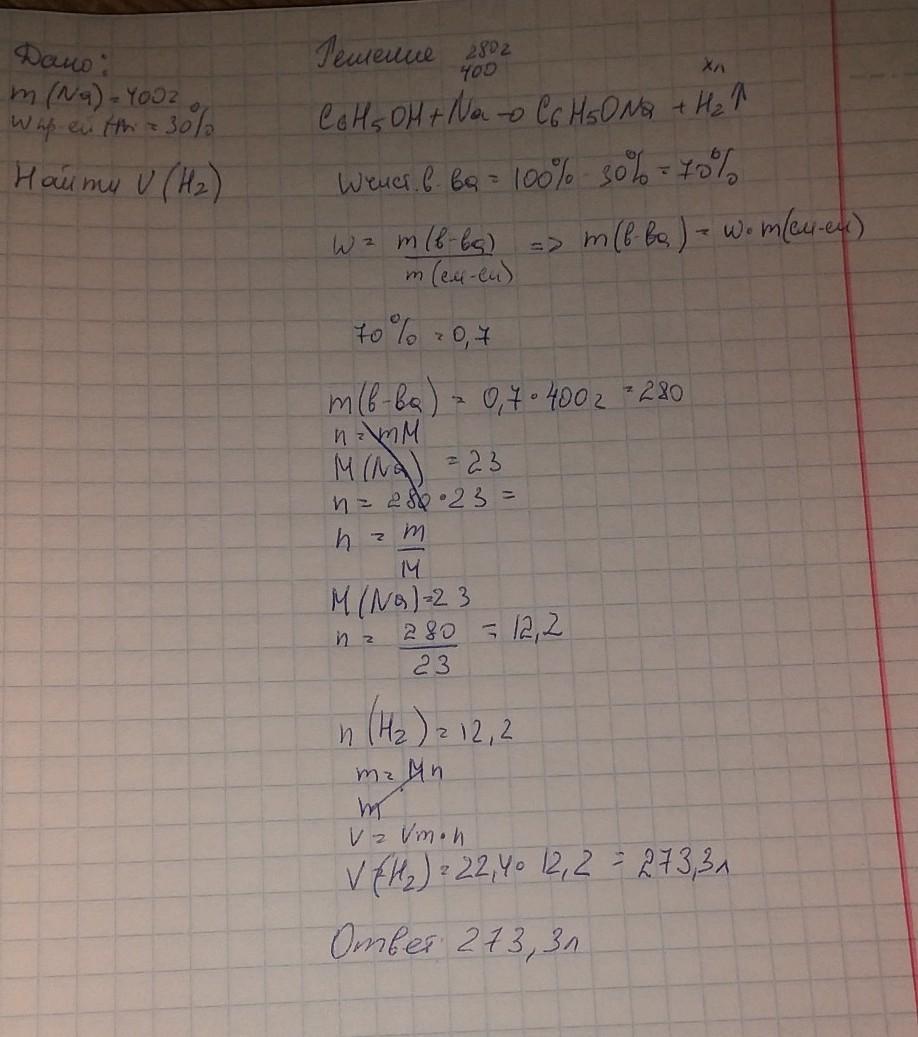 Дано:
m(Na)=400г
Wпр-ей = 30%
Найти V(H2)
Решение
280г
400
xл
C6H5OH+Na→C6H5ONa+H2↑
Wчист.в.ва=100%-30%=70%
W= m(в-ва)/m(см-си) => m(в-ва)=w•m(см-си)
70%=0,7
m(в-ва)=0,7•400г=280
n=mM
M(Na)=23
n=280•23=
n=m/M
M(Na)=23
n=280/23=12,2
n(H2)=12,2
m=Mn
m
V=Vm•n
V(H2)=22,4•12,2=273,3л
Ответ 273,3л